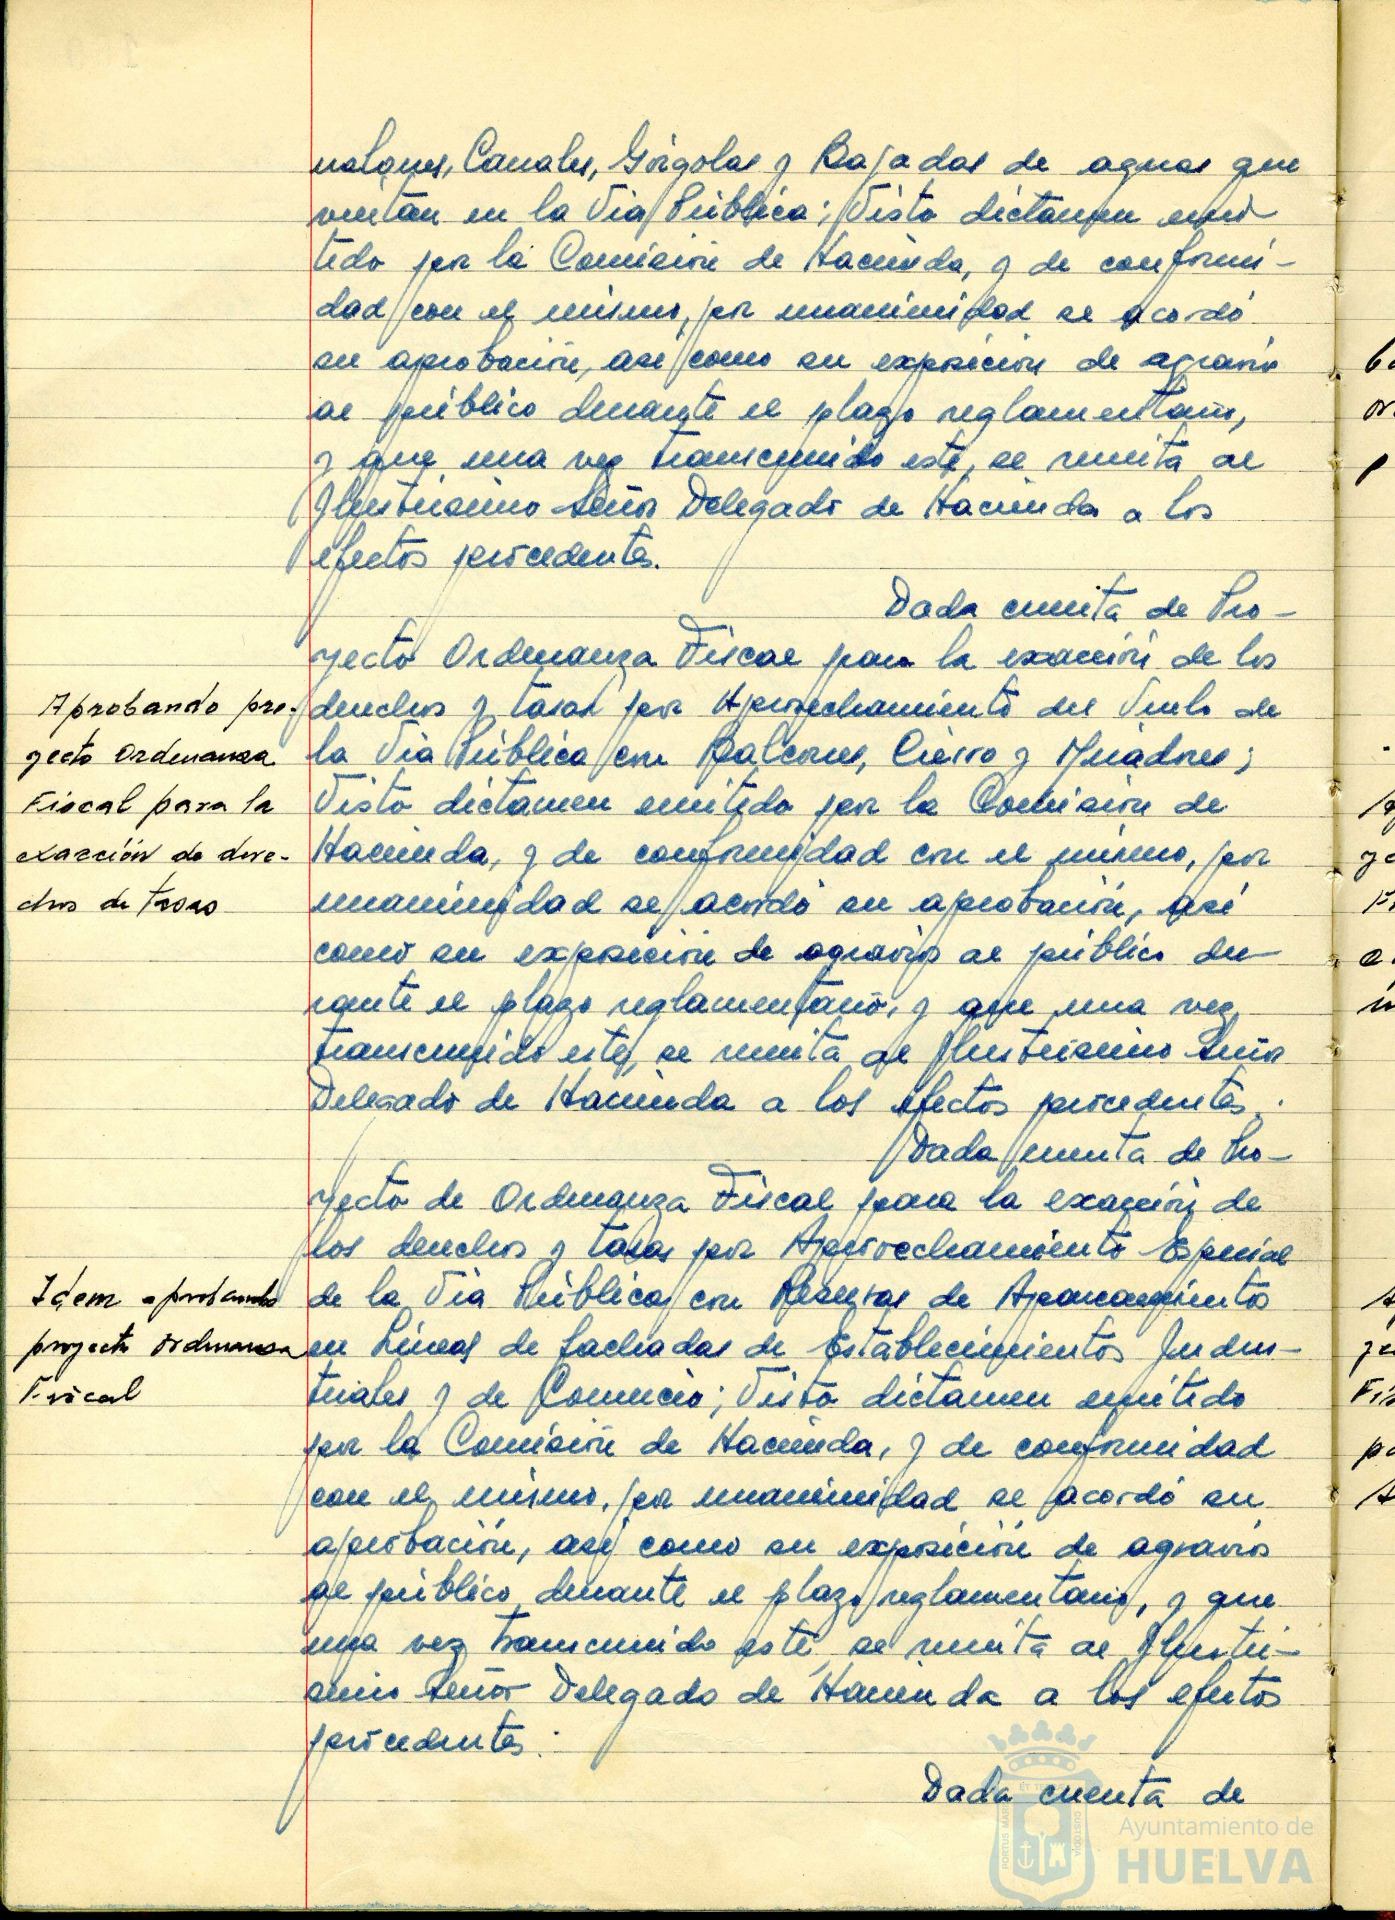 nalones, Canales, Górgolas y Bajadas de aguas que
viertan en la Via Pública; Visto dictamen emi-
tido por la Comisión de Hacienda, y de conformi-
dad con el mismo, por unanimidad se acordó
su aprobación, asi como su exposición de agravios
al público durante el plazo reglamentario,
y que una vez transcurrido este, se remita al
Ilustrisimo Señor Delegado de Hacienda a los
efectos procedentes.
Dada cuenta de Pro-
yecto Ordenanza Fiscal para la exacción de los
derechos y tasas por Aprovechamiento del Vuelo de
la Via Pública con Balcones, Cierro y Miradores;
Visto dictamen emitido por la Comisión de
Hacienda, y de conformidad con el mismo, por
unanimidad se acordó su aprobación, asi
como su exposición de agravios al público du-
rante el plazo reglamentario, y que una vez
transcurrido este, se remita al Ilustrisimo Señor
Delegado de Hacienda a los efectos procedentes.
Dada cuenta de Pro-
yecto de Ordenanza Fiscal para la exacción de
los derechos y tasas por Aprovechamiento Especial
de la Via Pública con Reservas de Aparcamientos
en Lineas de fachadas de Establecimientos Indus-
triales y de Comercio; Visto dictamen emitido
por la Comisión de Hacienda, y de conformidad
con el mismo, por unanimidad se acordó su
aprobación, asi como su exposición de agravios
al público durante el plazo reglamentario, y que
una vez transcurrido este, se remita al Ilustri-
simo Señor Delegado de Hacienda a los efectos
procedentes.
Dada cuenta de
Aprobando pro-
yecto Ordenanza
Fiscal para la
exacción de dere-
chos de tasas
Idem aprobando
proyecto ordenanza
Fiscal
Ayuntamiento de
HUELVA